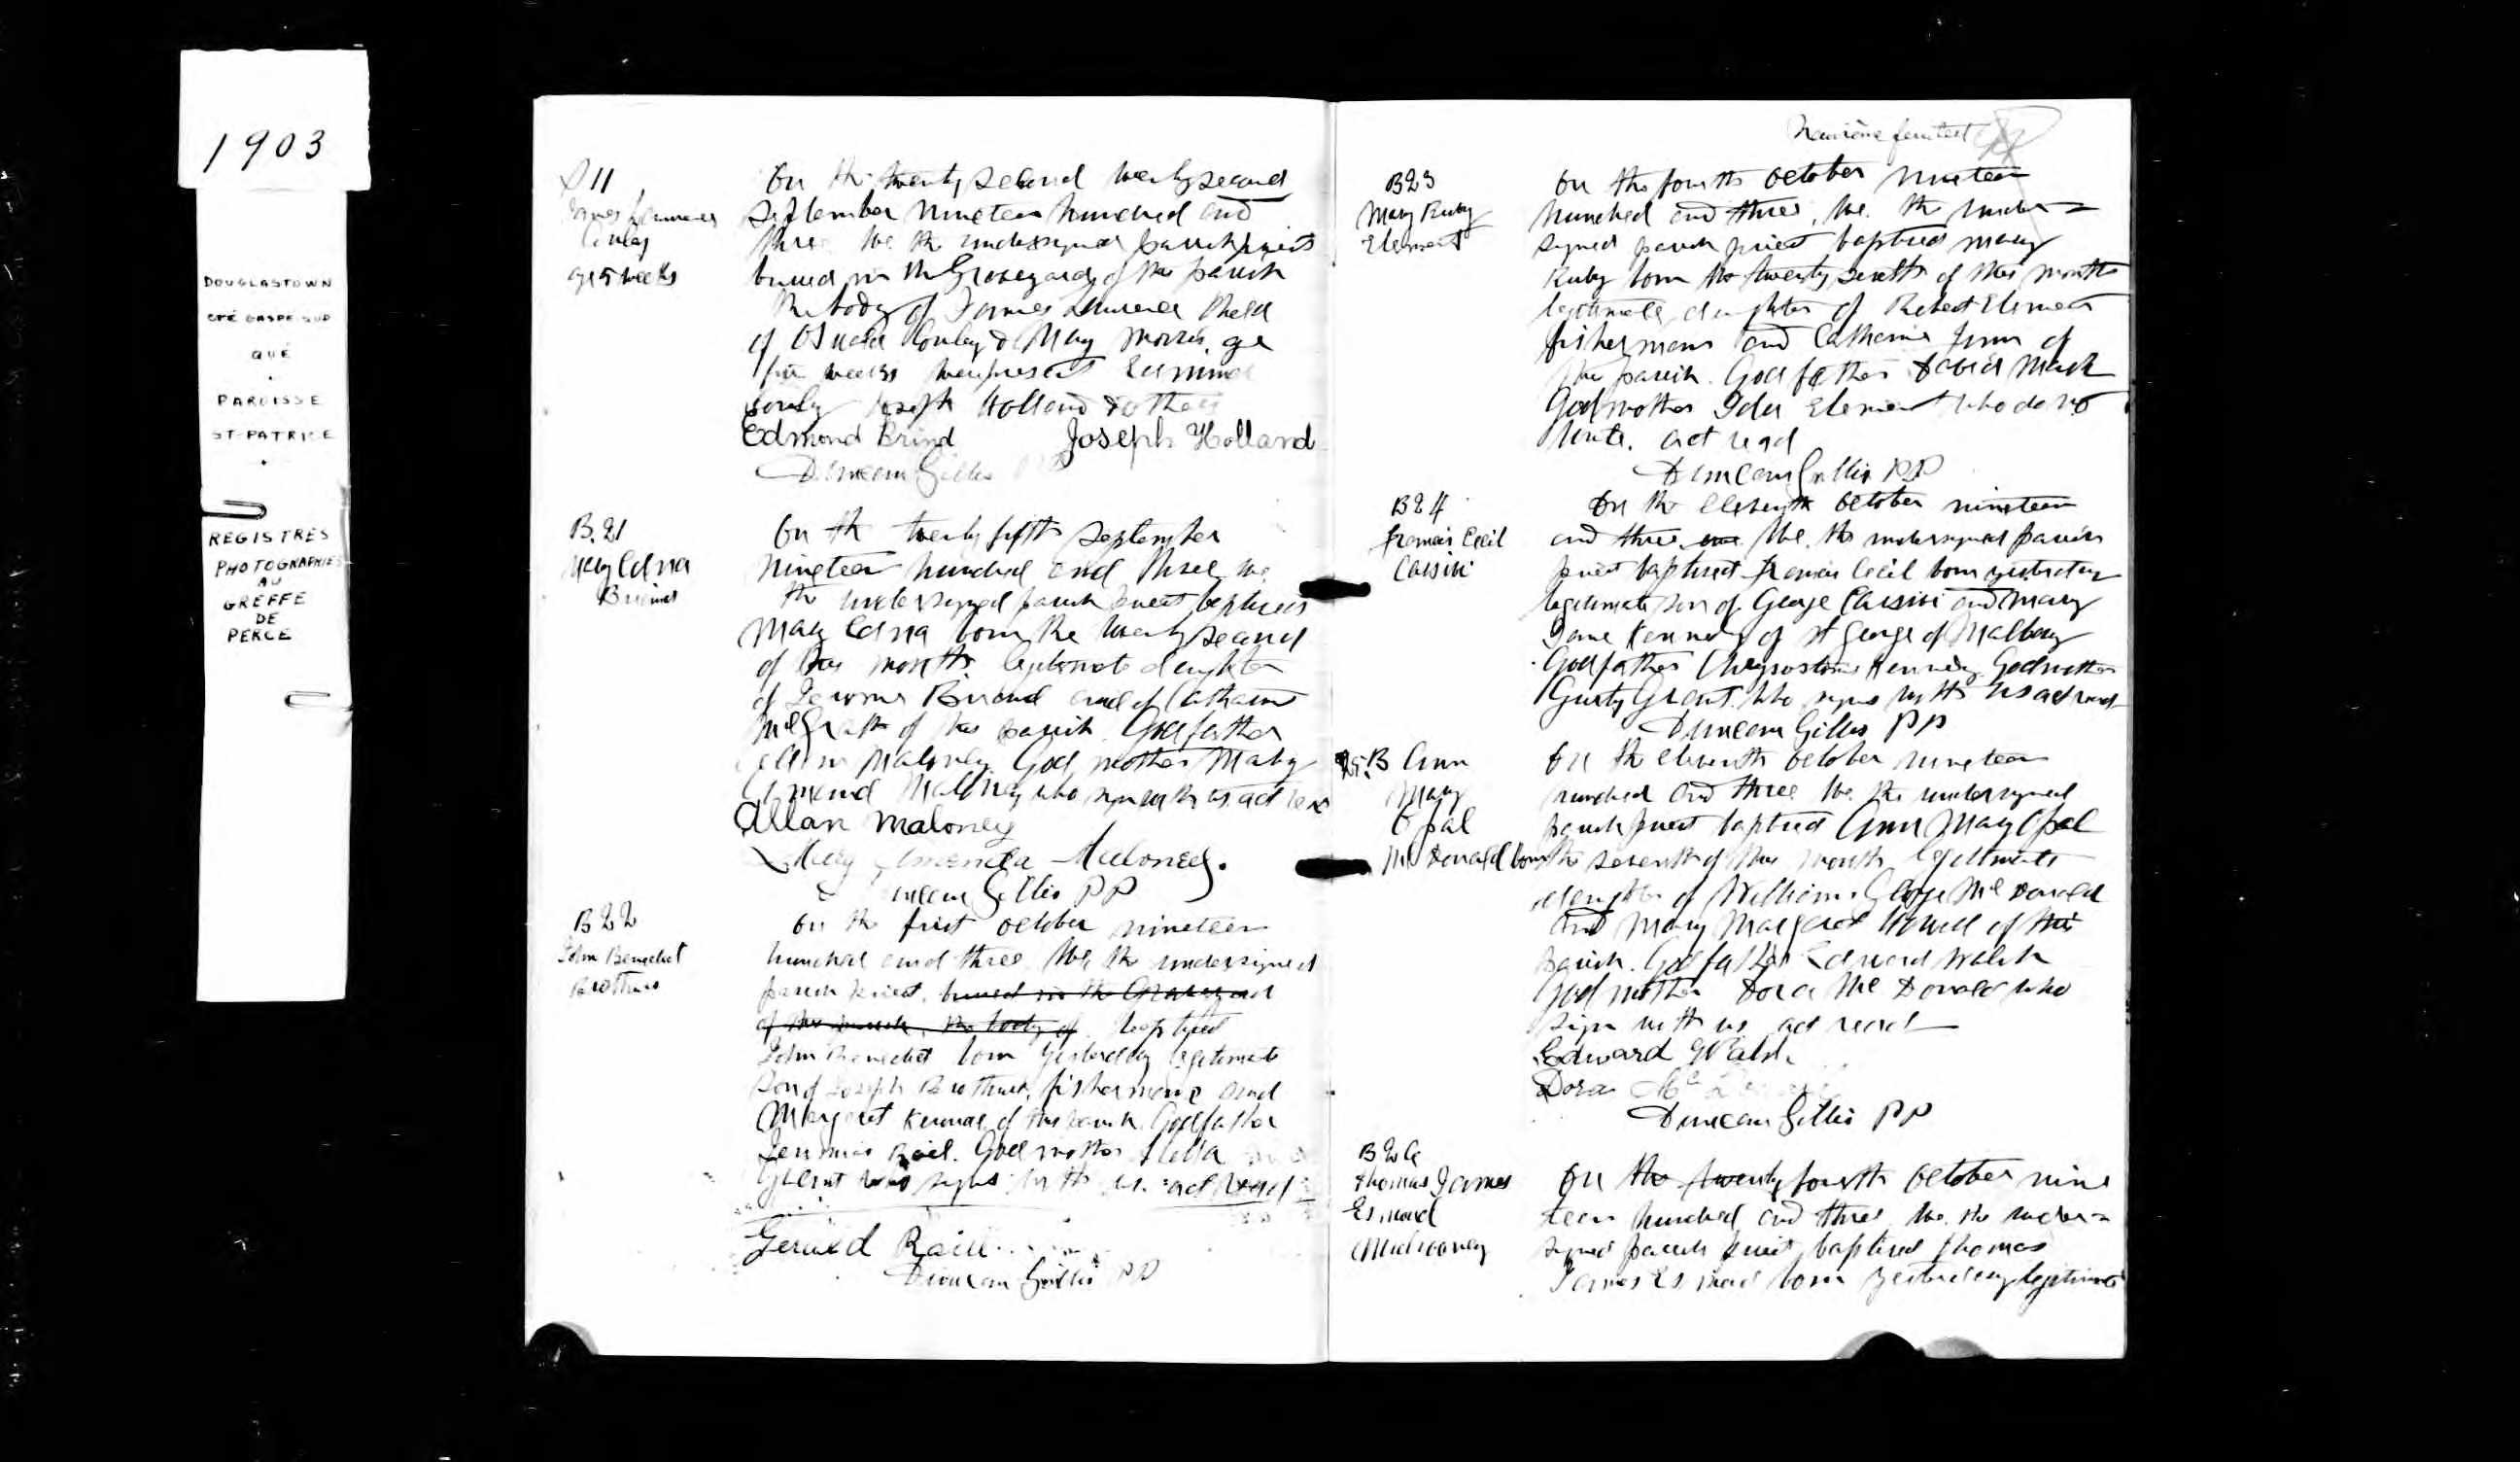 1903
DOUGLASTOWN
CTÉ GASPE-SUD
QUÉ
PAROISSE
ST-PATRICE
REGISTRES
PHOTOGRAPHIÉS
AU
GREFFE
DE
PERCE
S11
On the twenty second twenty second
September nineteen hundred and
three We the undersigned parish priest
buried in the Graveyard of this parish
the body of James Laurence child
of Conley & May Morris, age
five weeks were present
Joseph Holland & others
Edmond Brind Joseph Holland
Duncan Gillis PP
B.21
Mary Edna
On the twenty fifth September
nineteen hundred and three we
the undersigned parish priest baptised
Mary Edna born the twenty second
of this month legitimate daughter
of Jerome and of Catharine
McGrath of this parish. Godfather
Allan Maloney God mother Mary
Amanda Maloney who sign with us act read
Allan Maloney
Mary Amanda Maloney.
Duncan Gillis PP
B22
John Benedict
Brotherus
On the first October nineteen
hundred and three We the undersigned
parish priest, buried in the Graveyard
of this parish, the body of baptised
John Benedict born yesterday legitimate
son of Joseph fisherman and
Margaret of this parish. Godfather
Rail. Godmother Stella
Grant who signs with us. act read
Gerald Rail
Duncan Gillis PP
Neuvième feuillet
B23
Mary Ruby
Element
On the fourth October nineteen
hundred and three, We the under=
signed parish priest baptised Mary
Ruby born the twenty of this month
legitimate daughter of Robert Element
fisherman and Catharine of
this parish. Godfather David
Godmother Ida Element who do not
write. act read
Duncan Gillis PP
B24
Francis Cecil
On the eleventh October nineteen
and three We the undersigned parish
priest baptised Francis Cecil born yesterday
legitimate son of George and Mary
Jane Kennedy of St George of Malbay
Godfather Chrysostome Kennedy Godmother
Gerty Grant who signs with us act read
Duncan Gillis PP
25.B Ann
Mary
Opal
McDonald
On the eleventh October nineteen
hundred and three We the undersigned
parish priest baptised Ann Mary Opal
born the seventh of this month legitimate
daughter of William George McDonald
and Mary Margaret of this
parish. Godfather Edward Walsh
Godmother Dora McDonald who
sign with us act read
Edward Walsh
Dora McDonald
Duncan Gillis PP
B26
Thomas James
Esmond
On the twenty fourth October nine
teen hundred and three We the under=
signed parish priest baptised Thomas
James Esmond born yesterday legitimate